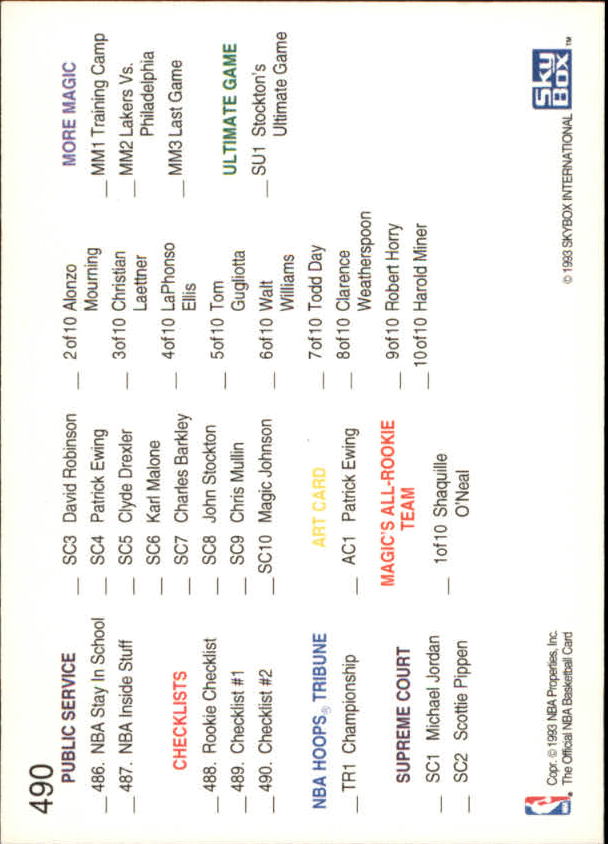 490
PUBLIC SERVICE
__ 486. NBA Stay In School
__ 487. NBA Inside Stuff
CHECKLISTS
__ 488. Rookie Checklist
__ 489. Checklist #1
__ 490. Checklist #2
NBA HOOPS® TRIBUNE
__ TR1 Championship
SUPREME COURT
__ SC1 Michael Jordan
__ SC2 Scottie Pippen
__ SC3 David Robinson
__ SC4 Patrick Ewing
__ SC5 Clyde Drexler
__ SC6 Karl Malone
__ SC7 Charles Barkley
__ SC8 John Stockton
__ SC9 Chris Mullin
__ SC10 Magic Johnson
ART CARD
__ AC1 Patrick Ewing
MAGIC'S ALL-ROOKIE
TEAM
__ 1of10 Shaquille
O'Neal
__ 2of10 Alonzo
Mourning
__ 3of10 Christian
Laettner
__ 4of10 LaPhonso
Ellis
__ 5of10 Tom
Gugliotta
__ 6of10 Walt
Williams
__ 7of10 Todd Day
__ 8of10 Clarence
Weatherspoon
__ 9of10 Robert Horry
__ 10of10 Harold Miner
MORE MAGIC
__ MM1 Training Camp
__ MM2 Lakers Vs.
Philadelphia
__ MM3 Last Game
ULTIMATE GAME
__ SU1 Stockton's
Ultimate Game
NBA
Copr. © 1993 NBA Properties, Inc.
The Official NBA Basketball Card
© 1993 SKYBOX INTERNATIONAL
SkyBox™